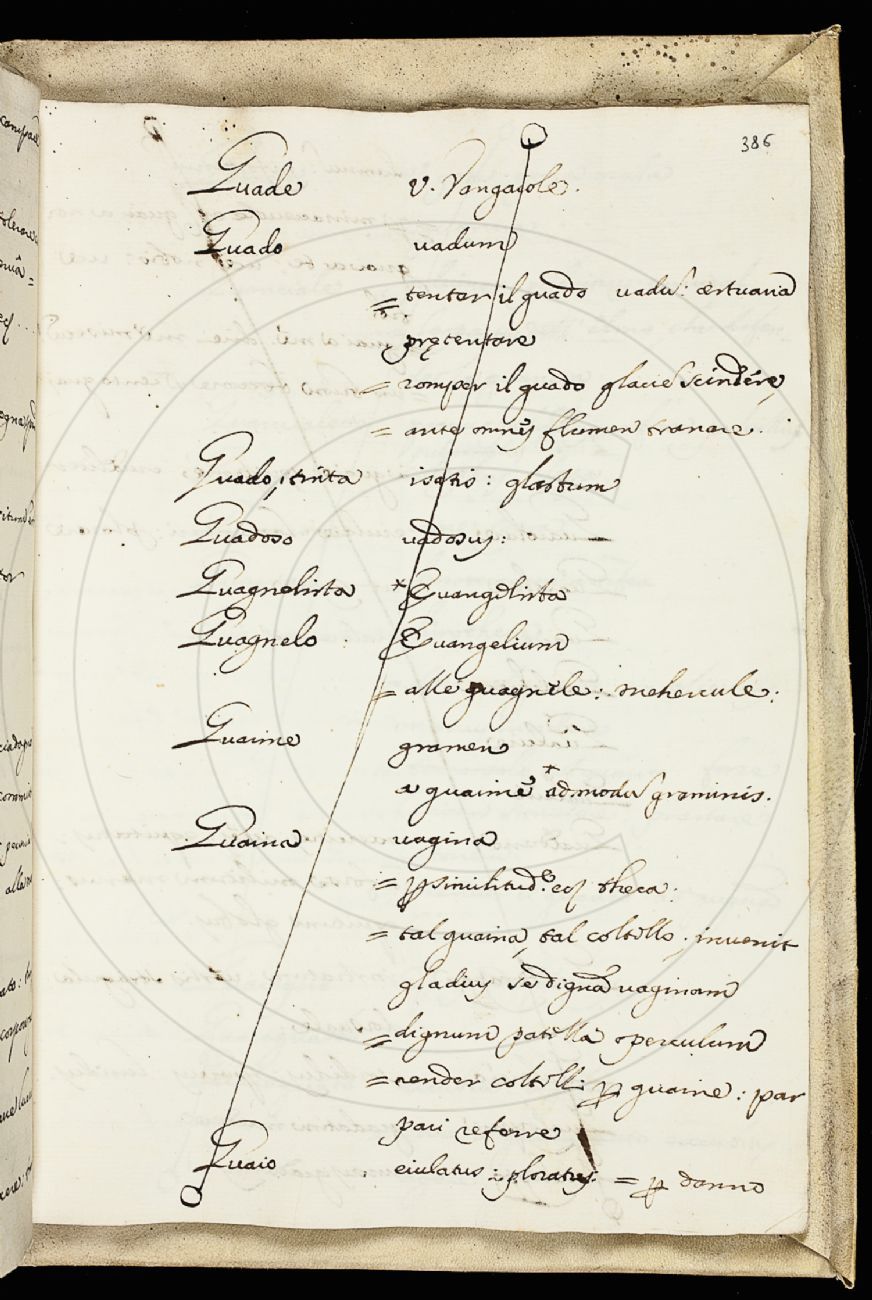 386
Guade v. Vangaiole.
Guado vadum
= tentar il guado vadũ: æstuaria
prętentare
= romper il guado glaciẽ scindere,
= ante omnes flumen tranare.
Guado, tinta isatis: glastum
Guadoso vadosus:
Guagnelista *Evangelista
Guagnelo : Evangelium
= alle guagnele: mehercule:
Guaime gramen
a guaime *ad modũ graminis.
Guaina vagina
= ꝑ similitud.e eq theca.
= tal guaina, tal coltello, invenit
gladius se dignã vaginam
= dignum patella operculum
= render coltell: ꝑ guaine: par
pari referre
Guaio eiulatus: ploratus: = ꝑ danno